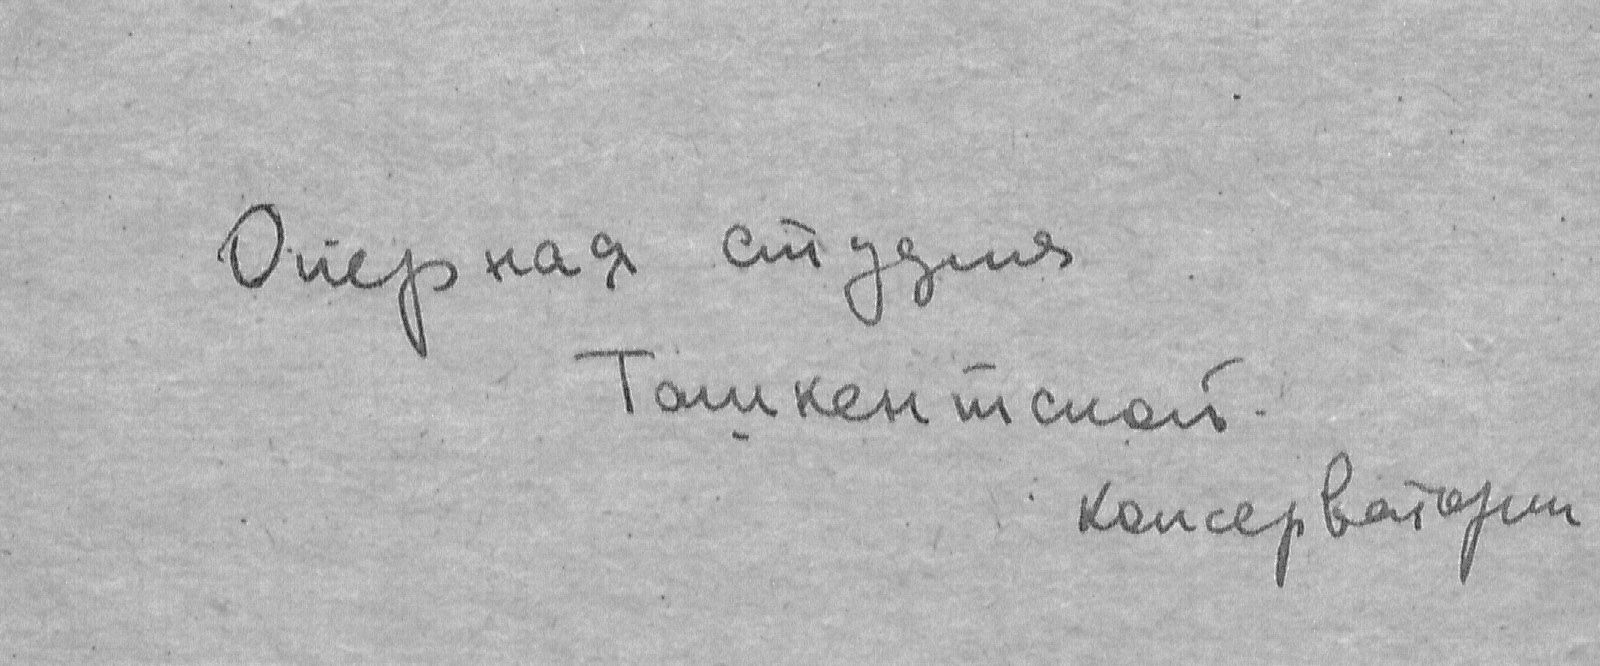 Оперная студия
Ташкентской
консерватории